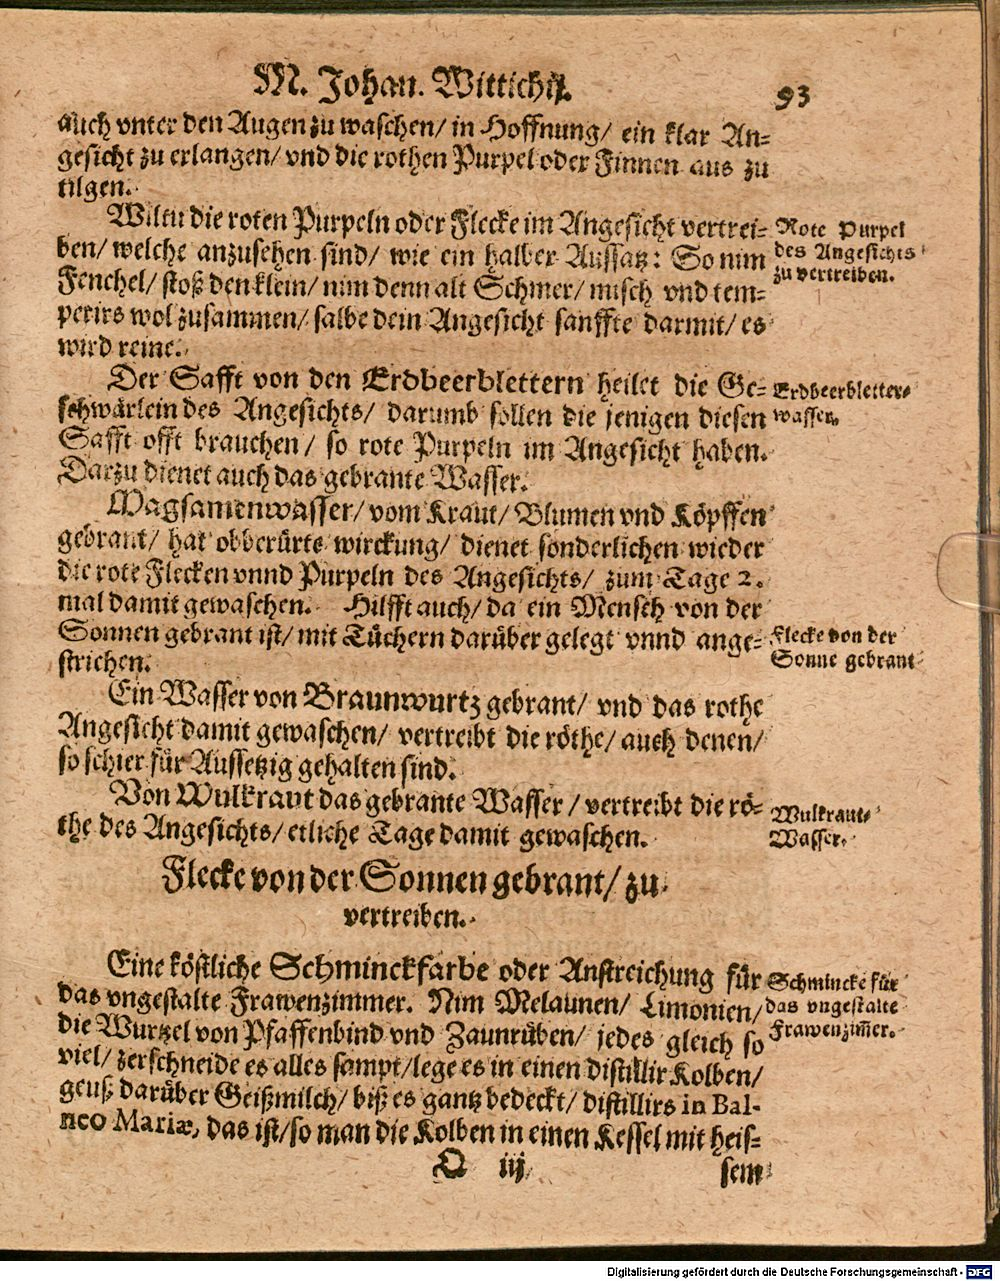 M. Johan. Wittichij.
93
auch vnter den Augen zu waschen/ in Hoffnung/ ein klar An-
gesicht zu erlangen/ vnd die rothen Purpel oder Finnen aus zu
tilgen.
Wiltu die roten Purpeln oder Flecke im Angesicht vertrei-
ben/ welche anzusehen sind/ wie ein halber Aussatz: So nim
Fenchel/ stoß den klein/ nim denn alt Schmer/ misch vnd tem-
perirs wol zusammen/ salbe dein Angesicht sanffte darmit/ es
wird reine.
Rote Purpel
des Angesichts
zu vertreiben.
Der Safft von den Erdbeerblettern heilet die Ge-
schwärlein des Angesichts/ darumb sollen die jenigen diesen
Safft offt brauchen/ so rote Purpeln im Angesicht haben.
Darzu dienet auch das gebrante Wasser.
Erdbeerbletter-
wasser.
Magsamenwasser/ vom Kraut/ Blumen vnd Köpffen
gebrant/ hat obberürte wirckung/ dienet sonderlichen wieder
die rote Flecken vnnd Purpeln des Angesichts/ zum Tage 2.
mal damit gewaschen. Hilfft auch/ da ein Mensch von der
Sonnen gebrant ist/ mit Tüchern darüber gelegt vnnd ange-
strichen.
Flecke von der
Sonne gebrant
Ein Wasser von Braunwurtz gebrant/ vnd das rothe
Angesicht damit gewaschen/ vertreibt die röthe/ auch denen/
so schier für Aussetzig gehalten sind.
Von Wulkraut das gebrante Wasser/ vertreibt die rö-
the des Angesichts/ etliche Tage damit gewaschen.
Wulkraut-
Wasser.
Flecke von der Sonnen gebrant/ zu
vertreiben.
Eine köstliche Schminckfarbe oder Anstreichung für
das vngestalte Frawenzimmer. Nim Melaunen/ Limonien/
die Wurtzel von Pfaffenbind vnd Zaunrüben/ jedes gleich so
viel/ zerschneide es alles sampt/ lege es in einen distillir Kolben/
geuß darüber Geißmilch/ biß es gantz bedeckt/ distillirs in Bal-
neo Mariæ, das ist/ so man die Kolben in einen Kessel mit heis-
Schmincke für
das vngestalte
Frawenzim̃er.
O iij
sem
Digitalisierung gefördert durch die Deutsche Forschungsgemeinschaft - DFG